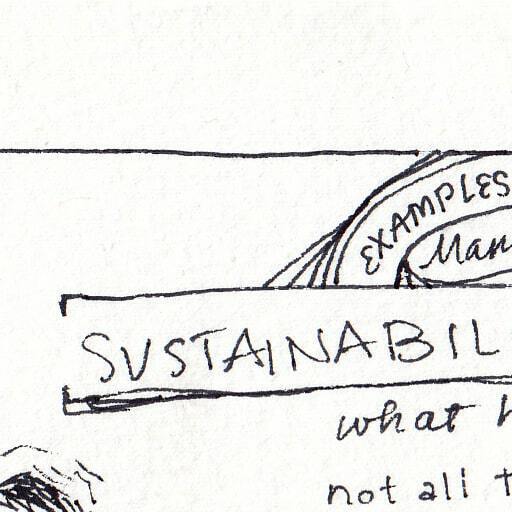 EXAMPLES
Man
SUSTAINABIL
what h
not all t